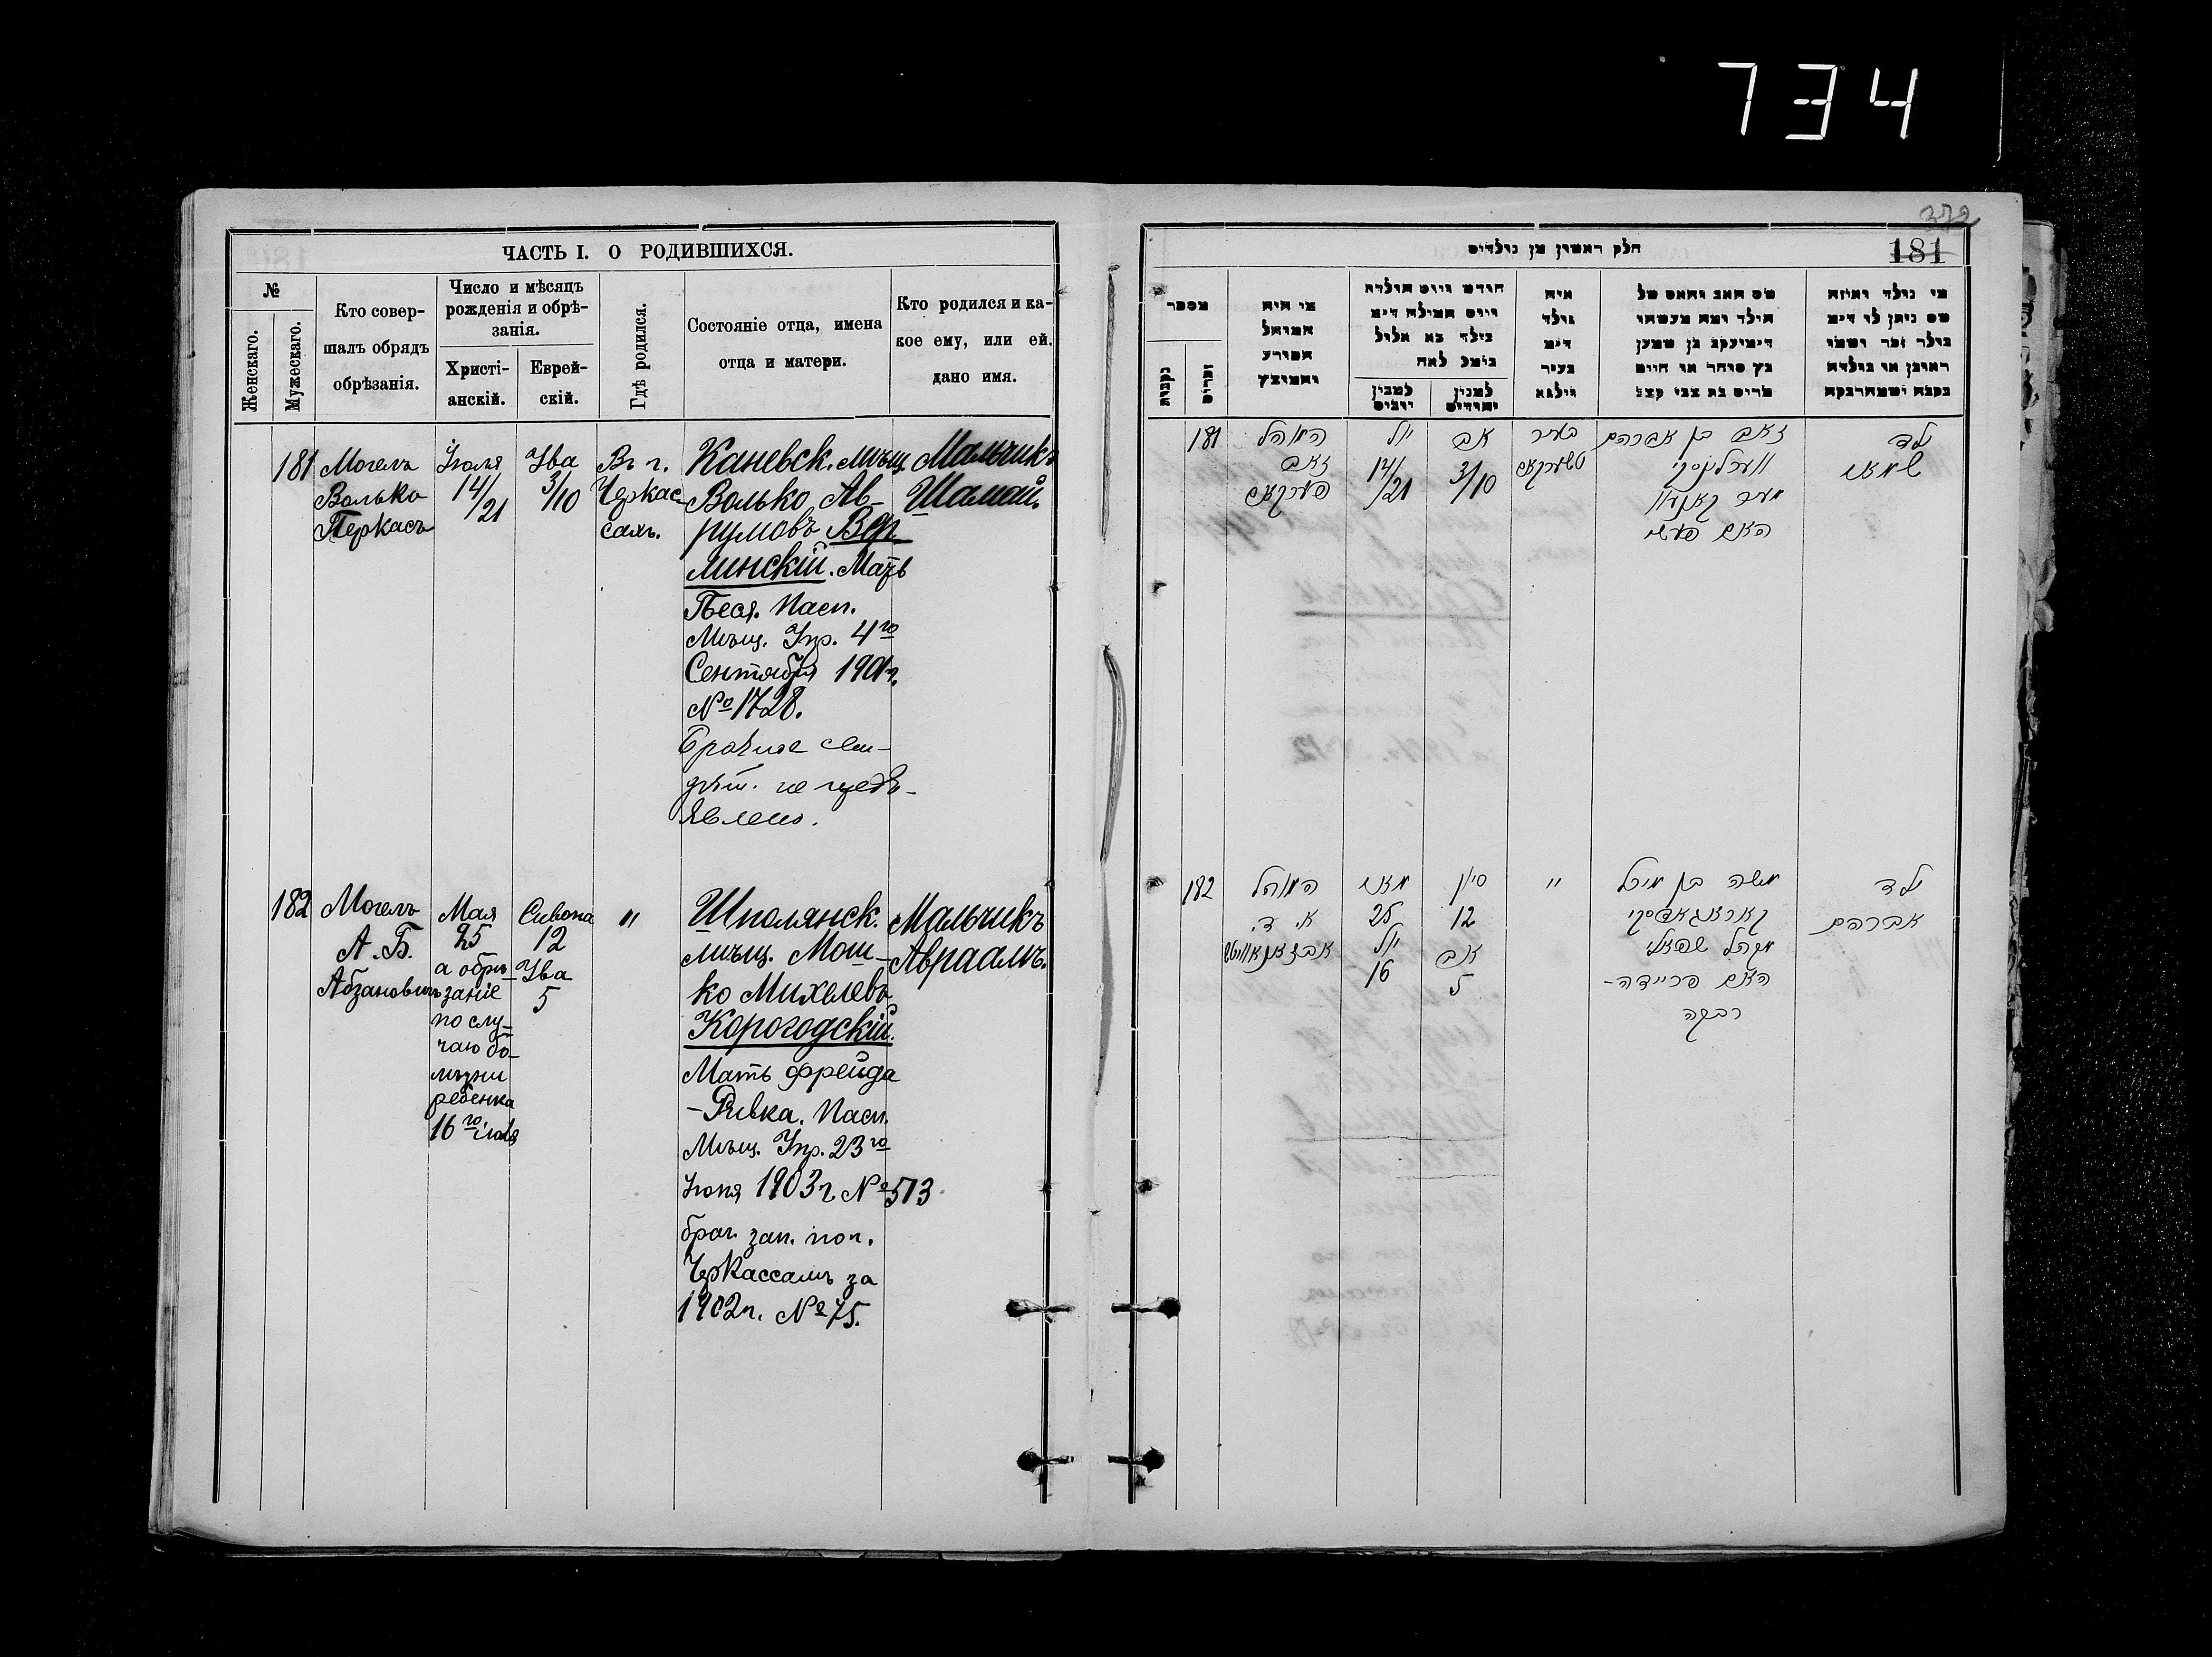 734
372
ЧАСТЬ I. О РОДИВШИХСЯ.
№
Женскаго.
Мужескаго.
Кто совер-
шалъ обрядъ
обрѣзанія.
Число и мѣсяцъ
рожденія и обрѣ-
занія.
Христі-
анскій.
Еврей-
скій.
Гдѣ родился.
Состояніе отца, имена
отца и матери.
Кто родился и ка-
кое ему, или ей,
дано имя.
181
Могелъ
Волько
Перкасъ
Іюля
14/21
Ува
3/10
Въ г.
Черкас-
сахъ.
Каневск. мѣщ.
Волько Ав-
румовъ Вер
линскій. Мать
Песя. Пасп.
Мѣщ. Упр. 4го
Сентября 1901г.
№ 1728.
Брачное сви-
дѣт. не предъ-
явлено.
Мальчикъ
Шамай.
182
Могелъ
А. Б.
Абзановичъ
Мая
25
а обрѣ-
заніе
по слу-
чаю бо-
лѣзни
ребенка
16го іюля
Сивона
12
Ува
5
"
Шполянск.
мѣщ. Мош-
ко Михелевъ
Корогодскій.
Мать Фрейда
-Ривка. Пасп.
Мѣщ. Упр. 23го
1903г. № 513
брач. зап. по г.
Черкассамъ за
1902г. № 75.
Мальчикъ
Авраамъ.
חלק ראשון מן נולדים
181
מספר
נקבות
זכרים
מי היה
המוהל
והפורע
והמוצץ
חודש ויום הולדת
ויום המילה
למנין
יהודים
איה
נולד
בעיר
ווילנא
שם האב והאם של
הילד ומה מעשהו
מי נולד ואיזה
שם ניתן לו
181
המוהל
זאב
פערקאס
יולי
14/21
אב
3/10
בעיר
טשערקאס
זאב בן אברהם
ווערלינסקי
מעיר קאנעוו
האם פעסי
ילד
שמאי
182
המוהל
מאי
25
יולי
16
סיון
12
אב
5
"
משה בן מיכל
האם פריידה-
רבקה
ילד
אברהם